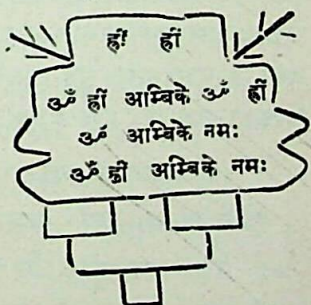 ह्रीं ह्रीं
ॐ ह्रीं अम्बिके ॐ ह्रीं
ॐ अम्बिके नमः
ॐ ह्रीं अम्बिके नमः